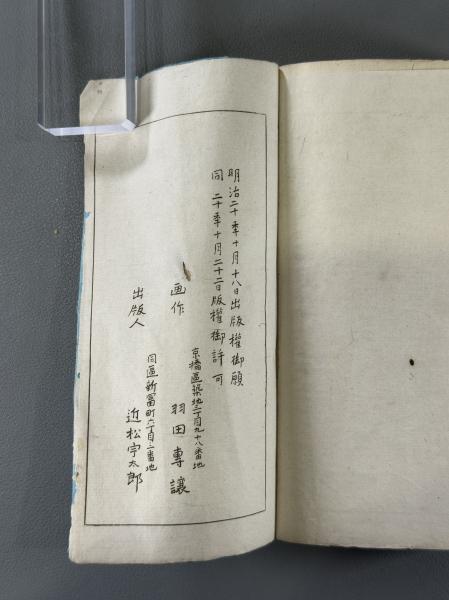 明治二十季十月十八日出版權御願
同 二十季十月二十二日版權御許可
京橋區築地二丁目九十八番地
画作 羽田專讓
同區新冨町六丁目二番地
出版人 近松宇太郎